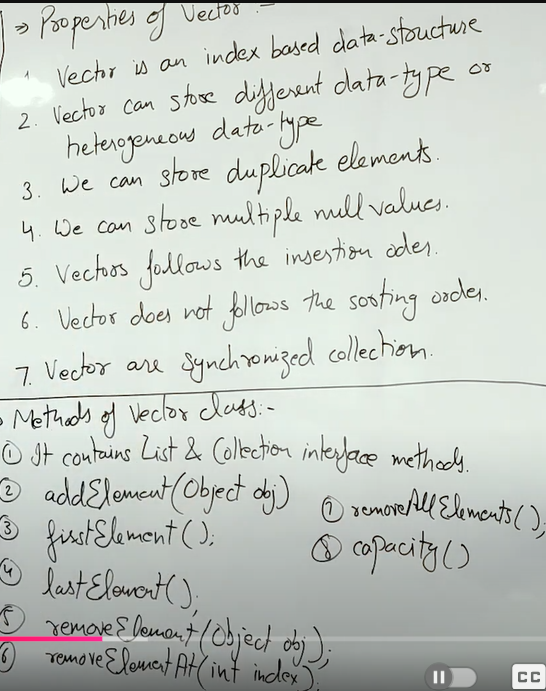 ⇒ Properties of Vector :-
1. Vector is an index based data-structure
2. Vector can store different data-type or
heterogeneous data-type
3. We can store duplicate elements.
4. We can store multiple null values.
5. Vectors follows the insertion oder.
6. Vector does not follows the sorting order.
7. Vector are synchronized collection.
Methods of Vector class:-
① It contains List & Collection interface methods.
② addElement(Object obj)
③ firstElement();
④ lastElement();
⑤ removeElement(Object obj);
⑥ removeElementAt(int index);
⑦ removeAllElements();
⑧ capacity()
CC